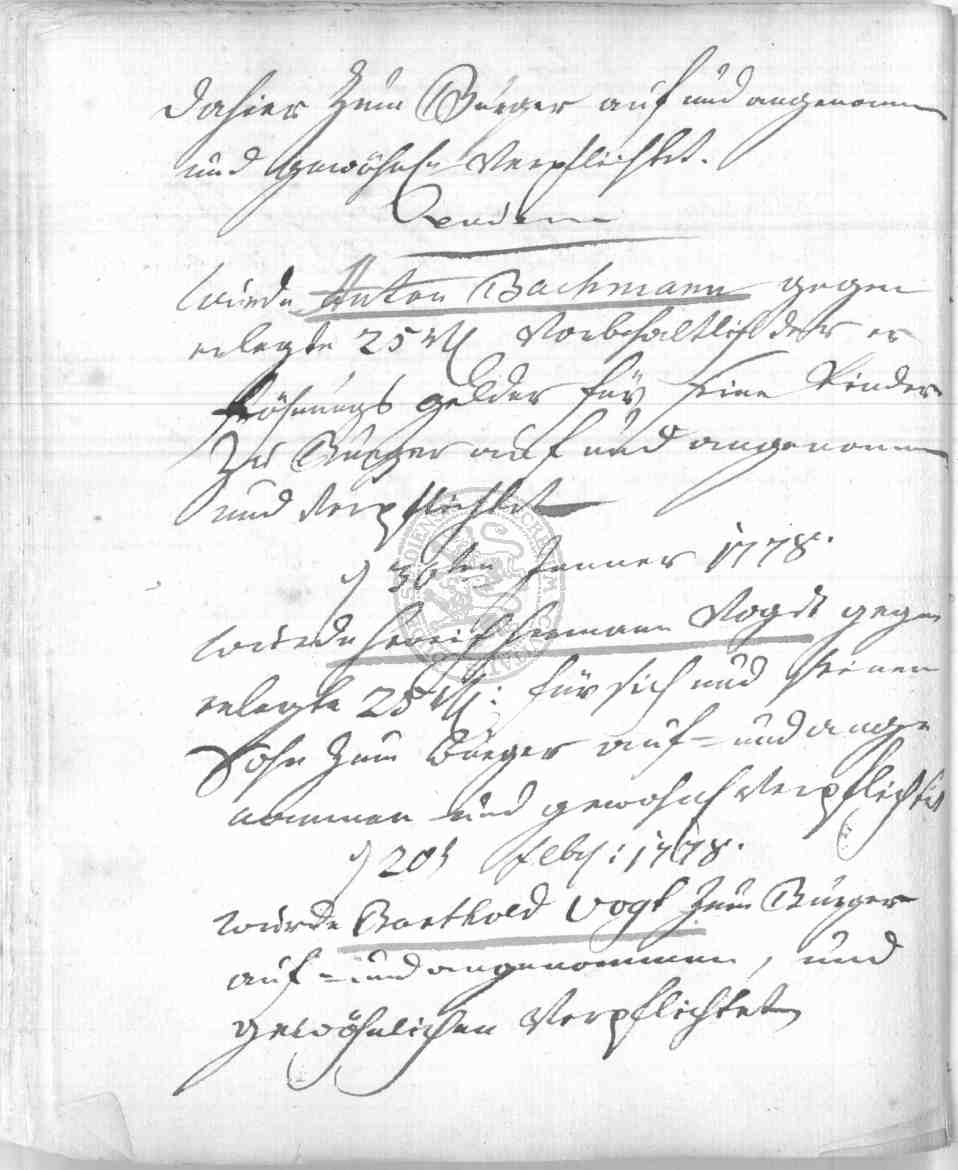 dahier zum Bürger auf und angenomen
und gewöhnl. Verpflichtet.
Eodem
wurde Anton Bachmann gegen
erlegte 25 Rthl Vorbehaltlich derer
fröhnungs gelder für seine Kinder
Zu Bürger auf und angenomen
und Verpflichtet
d 30ten Jenner 1778.
wurde Hermann Vogdt gegen
erlegte 25 Rthl: für sich und seinen
Sohn zum Bürger auf- und ange
nommen und gewöhnl Verpflichtet
d 20t Febr: 1778.
wurde Barthold Vogt zum Bürger
auf- und angenommen, und
gewöhnlichen Verpflichtet